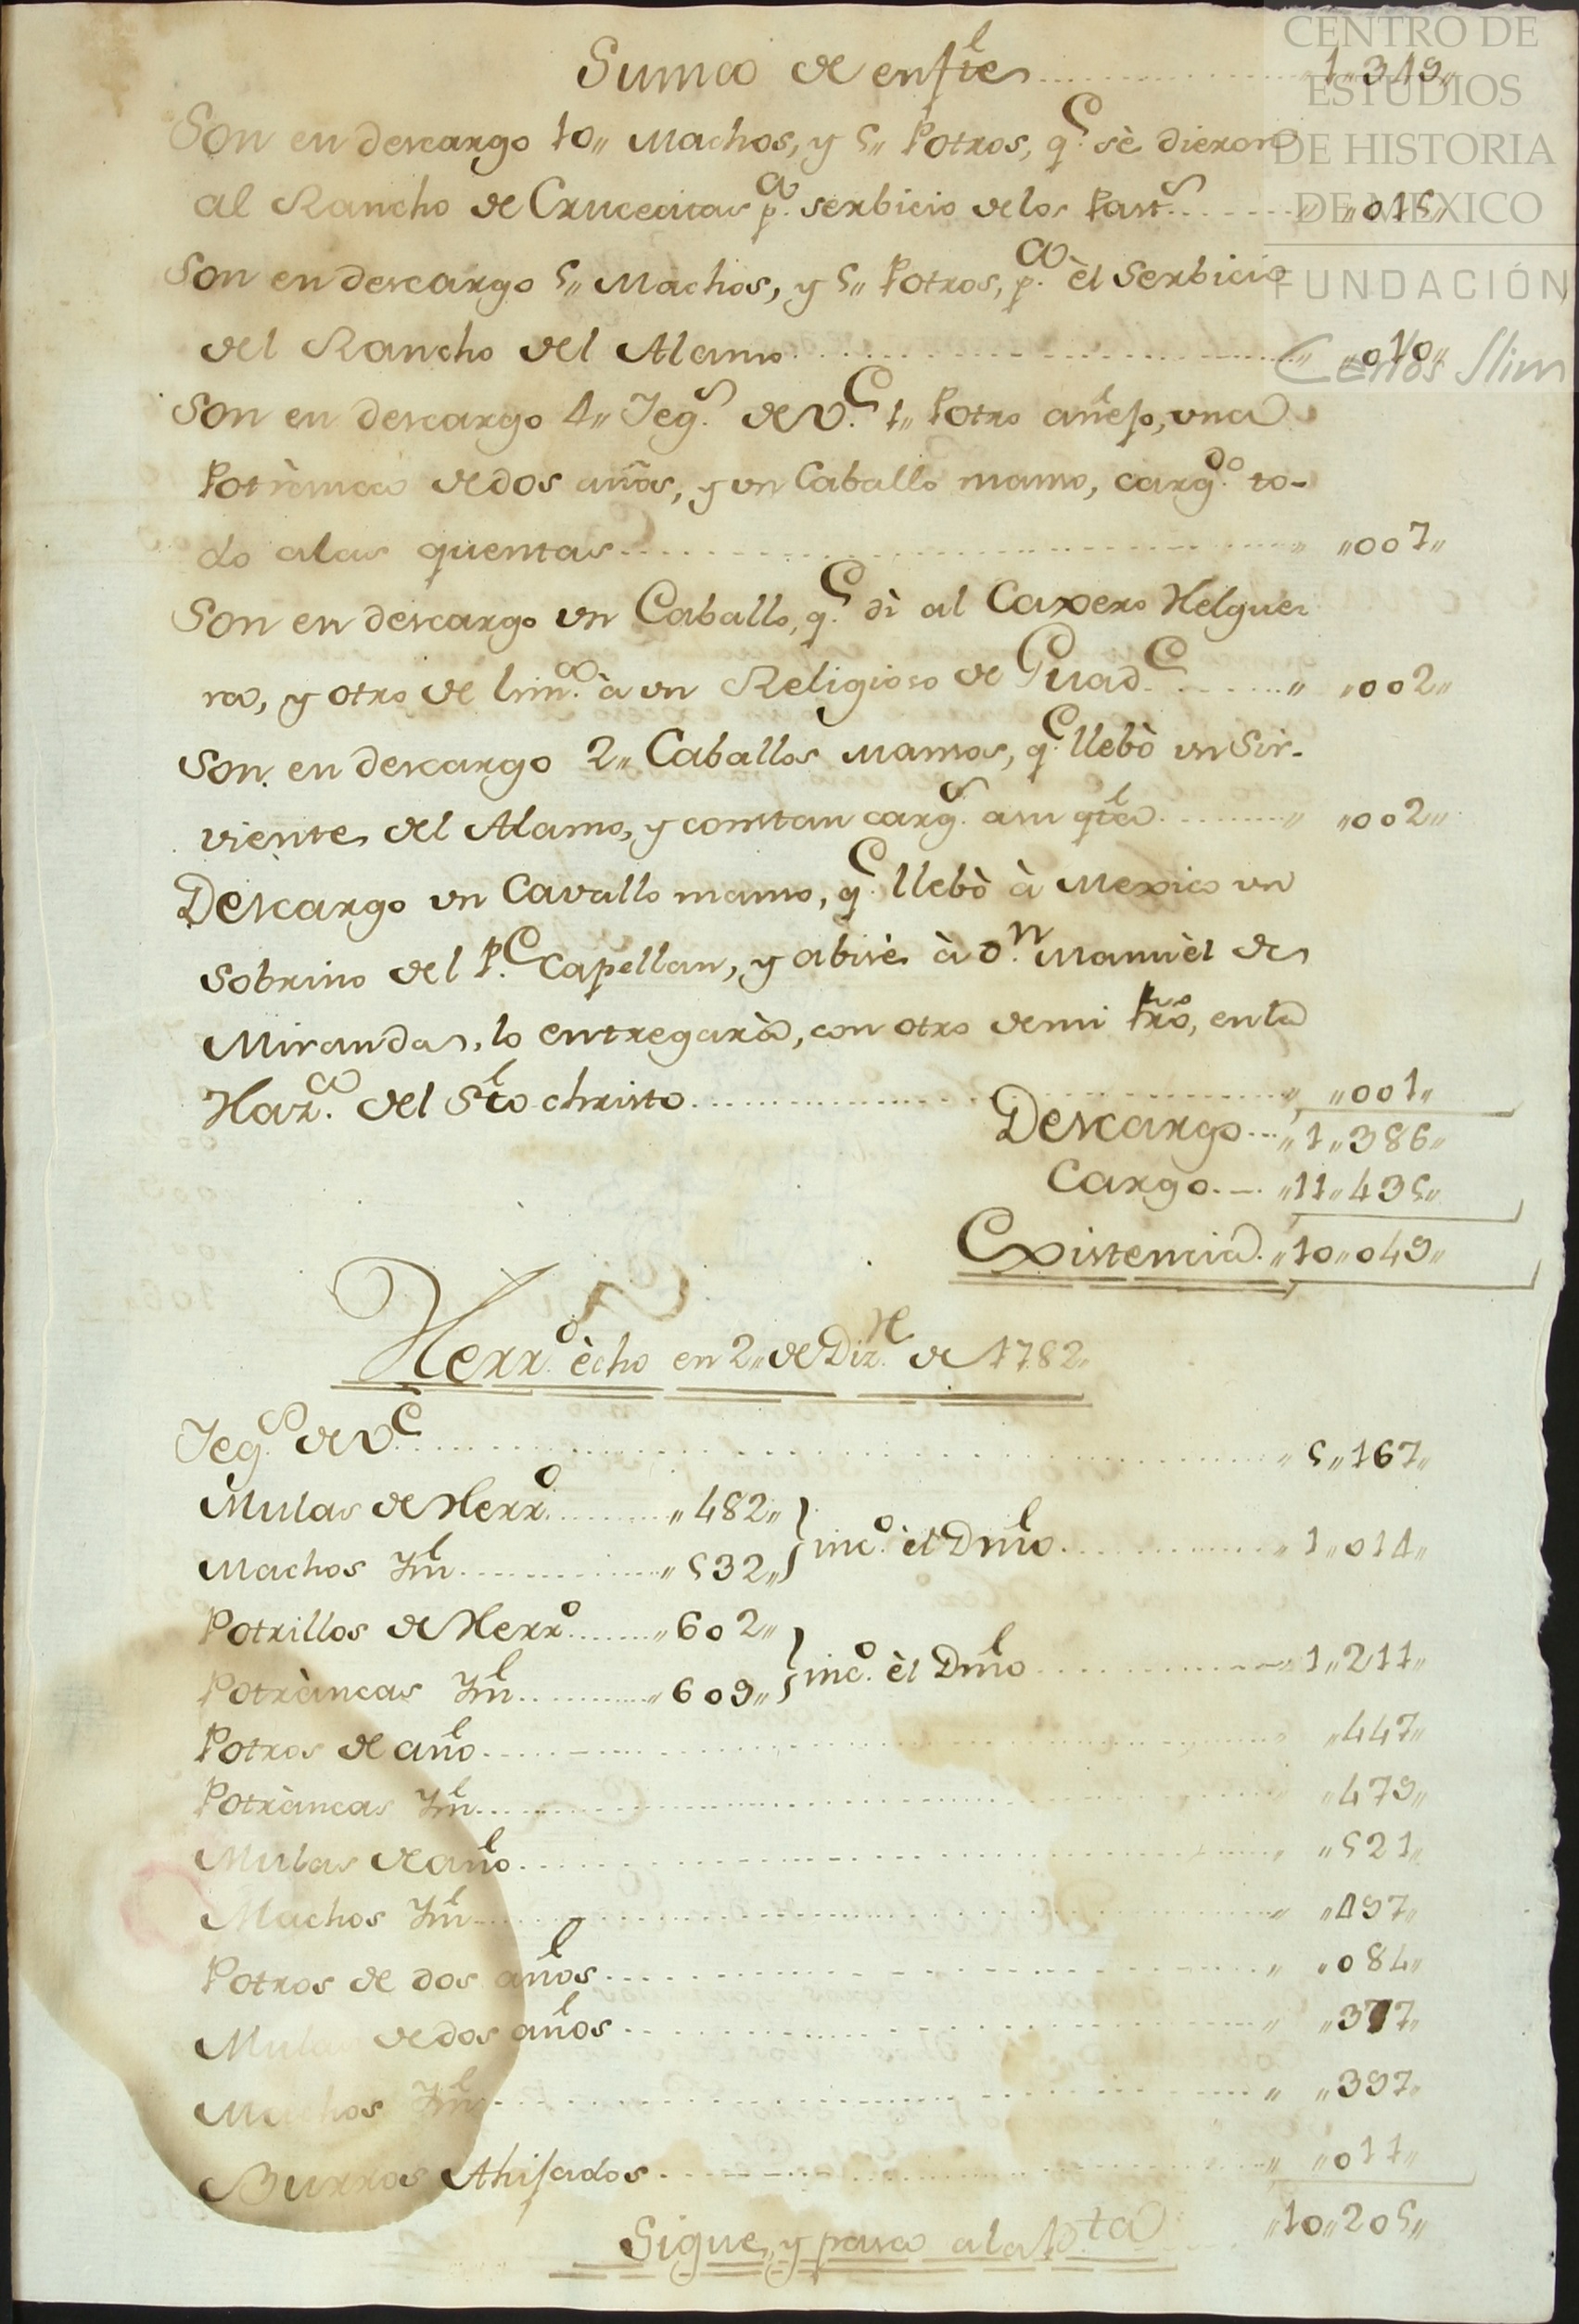 Suma de enfte 1,,349,,
Son en descargo 10,, Machos, y 5,, Potros, q.e sè dieron
al Rancho de Crucecitas p.a serbicio de los Past.s ,,015,,
Son en descargo 5,, Machos, y 5,, Potros, p.a èl Serbicio
del Rancho del Alamo ,,010,,
Son en descargo 4,, Yeg.s de V.e 1,, Potro añejo, una
Potrànca de dos años, y un Caballo manso, carg.do to-
do a las quentas ,,007,,
Son en descargo un Caballo, q.e dì al Caxero Helgue
ra, y otro de lim.a à un Religioso de Guad.e ,,002,,
Son en descargo 2,, Caballos mansos, q.e llebò un Sir-
viente del Alamo, y constan carg.s a su qta ,,002,,
Descargo un Cavallo manso, q.e llebò à Mexico un
sobrino del P.e Capellan, y abisè à D.n Manuèl de
Miranda, lo entregarà, con otro de mi frro, en la
Haz.a del Sto christo ,,001,,
Descargo ,,1,,386,,
Cargo ,,11,,435,,
Existencia ,,10,,049,,
Herr.o ècho en 2,, de Diz.re de 1782,,
Yeg.s de V.e ,,5,,167,,
Mulas de Herr.o ,,482,,
inc.o èl Dmo ,,1,,014,,
Machos Ym ,,532,,
Potrillos de Herr.o ,,602,,
inc.o èl Dmo ,,1,,211,,
Potràncas Ym ,,609,,
Potros de año ,,447,,
Potràncas Ym ,,479,,
Mulas de año ,,521,,
Machos Ym ,,497,,
Potros de dos años ,,084,,
Mulas de dos años ,,377,,
Machos Ym ,,397,,
Burros Ahijados ,,011,,
,,10,,205,,
Sigue, y pasa a la bta
CENTRO DE
ESTUDIOS
DE HISTORIA
DE MEXICO
FUNDACIÓN
Carlos Slim